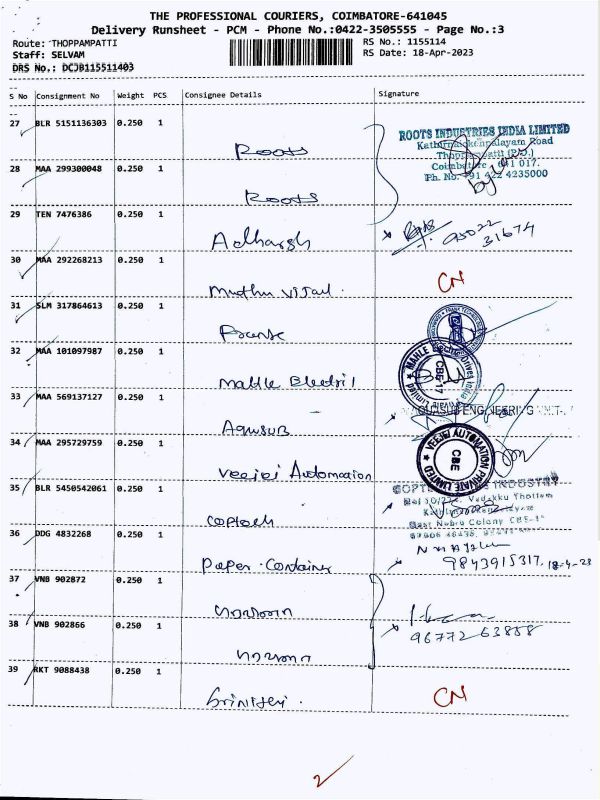 THE PROFESSIONAL COURIERS, COIMBATORE-641045
Delivery Runsheet - PCM - Phone No.:0422-3505555 - Page No.:3
Route: THOPPAMPATTI RS No.: 1155114
Staff: SELVAM RS Date: 18-Apr-2023
DRS No.: DCJB115511403
S No Consignment No Weight PCS Consignee Details Signature
27 BLR 5151136303 0.250 1
Roots
ROOTS INDUSTRIES INDIA LIMITED
Road
Coimbatore - 641 017.
Ph. No. +91 422 4235000
28 MAA 299300048 0.250 1
Roots
29 TEN 7476386 0.250 1
Adharsh
95022
31674
30 MAA 292268213 0.250 1
Muthu
CN
31 SLM 317864613 0.250 1
32 MAA 101097987 0.250 1
Mahle Electril
MAHLE Electric Drives India Private Limited
CBE-17
33 MAA 569137127 0.250 1
Aquasub
AQUASUB ENGINEERING UNIT-
34 MAA 295729759 0.250 1
Veejei Automation
VEEJEI AUTOMATION PRIVATE LIMITED
CBE
35 BLR 5450542061 0.250 1
Coptech
INDUSTRY
Vadakku Thottam
East Nehru Colony CBE-1
36 DDG 4832268 0.250 1
Paper Container
9843915317, 18-4-23
37 VNB 902872 0.250 1
38 VNB 902866 0.250 1
96772 63858
39 RKT 9088438 0.250 1
CN
2